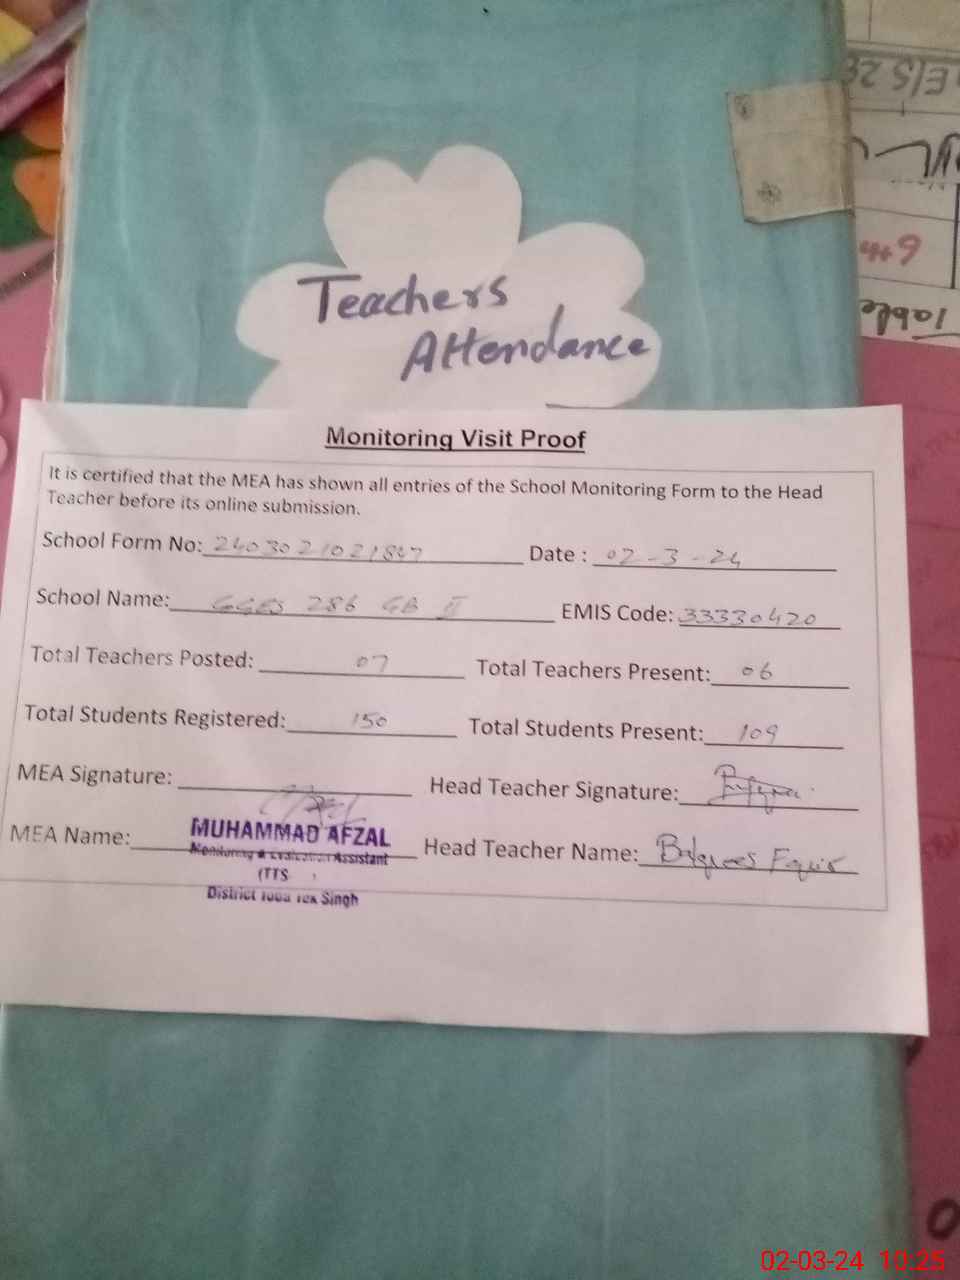 Teachers
Attendance
Monitoring Visit Proof
It is certified that the MEA has shown all entries of the School Monitoring Form to the Head
Teacher before its online submission.
School Form No: 2403021021847 Date : 02-3-24
School Name: GGES 286 GB II EMIS Code: 33330420
Total Teachers Posted: 07 Total Teachers Present: 06
Total Students Registered: 150 Total Students Present: 109
MEA Signature: Head Teacher Signature:
MEA Name: MUHAMMAD AFZAL Head Teacher Name:
Monitoring & Evaluation Assistant
(TTS
District Toba Tek Singh
Table
02-03-24 10:25